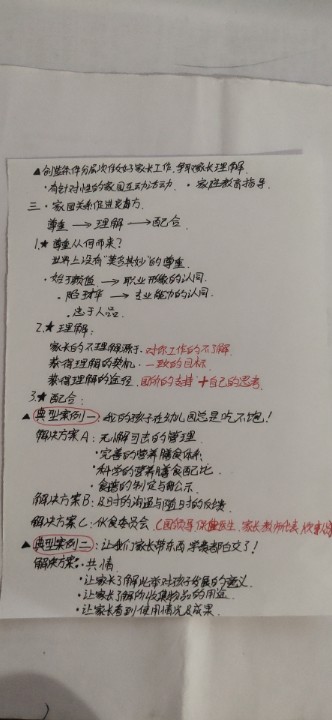 ▲创造条件分层次做好家长工作,争取家长理解
·有针对性的家园互动活动. ·家庭教育指导.
三.家园关系促进策方.
尊重→理解→配合.
1.★尊重从何而来?
世界上没有"莫名其妙"的尊重.
·始于颜值→职业形象的认同.
·陷于才华→专业能力的认同.
·忠于人品.
2.★理解:
家长的不理解源于:对你工作的不了解.
获得理解的契机:一致的目标.
获得理解的途径:园所的支持+自己的思考.
3.★配合:
▲典型案例一:我的孩子在幼儿园总是吃不饱!
解决方案A:无懈可击的管理
·完善的营养膳食体系
·科学的营养膳食配比.
·食谱的制定与公示.
解决方案B:及时的沟通与随时的反馈.
解决方案C:伙食委员会(园领导、保健医生、家长
▲典型案例二:让我们家长带东西,学费都白交了!
解决方案:·共情.
·让家长了解此举对孩子发展的意义.
·让家长了解所收集物品的用途.
·让家长看到使用情况及成果.